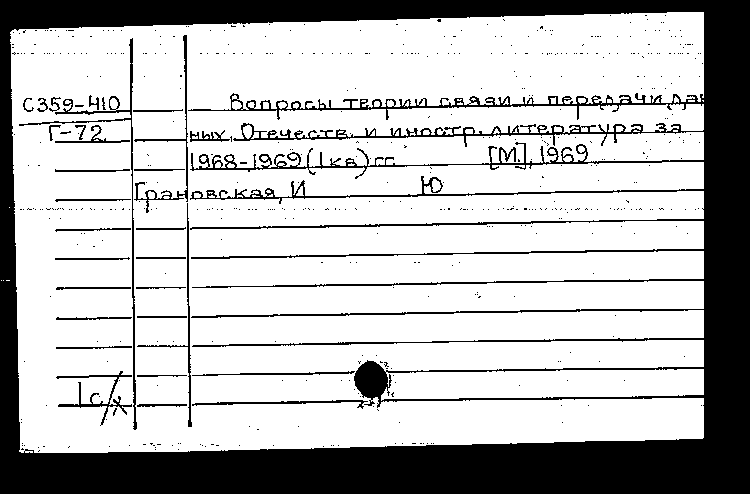 С359-410 Вопросы теории связи и передачи дан
Г-72 ных. Отечеств. и иностр. литература за
1968-1969 (I кв) гг. [М], 1969
Грановская, И Ю
1с/х